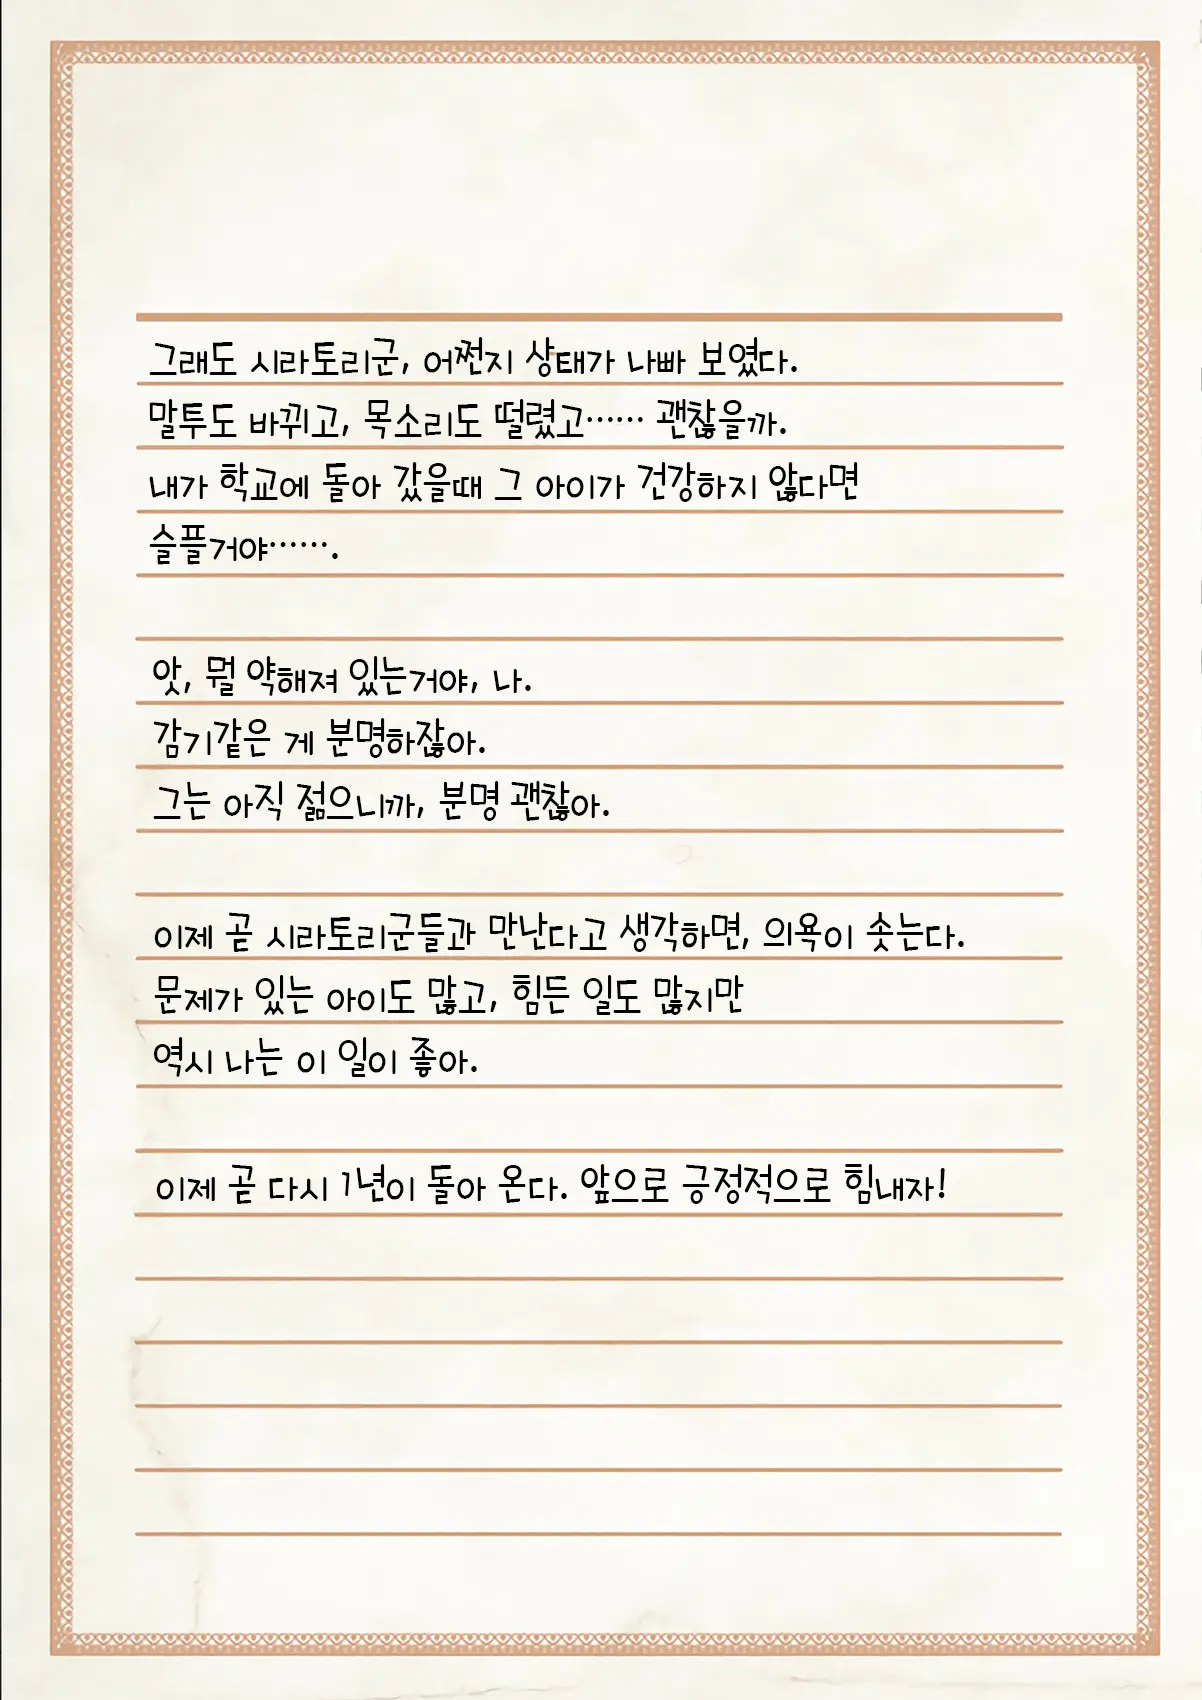 그래도 시라토리군, 어쩐지 상태가 나빠 보였다.
말투도 바뀌고, 목소리도 떨렸고…… 괜찮을까.
내가 학교에 돌아 갔을때 그 아이가 건강하지 않다면
슬플거야…….
앗, 뭘 약해져 있는거야, 나.
감기같은 게 분명하잖아.
그는 아직 젊으니까, 분명 괜찮아.
이제 곧 시라토리군들과 만난다고 생각하면, 의욕이 솟는다.
문제가 있는 아이도 많고, 힘든 일도 많지만
역시 나는 이 일이 좋아.
이제 곧 다시 1년이 돌아 온다. 앞으로 긍정적으로 힘내자!